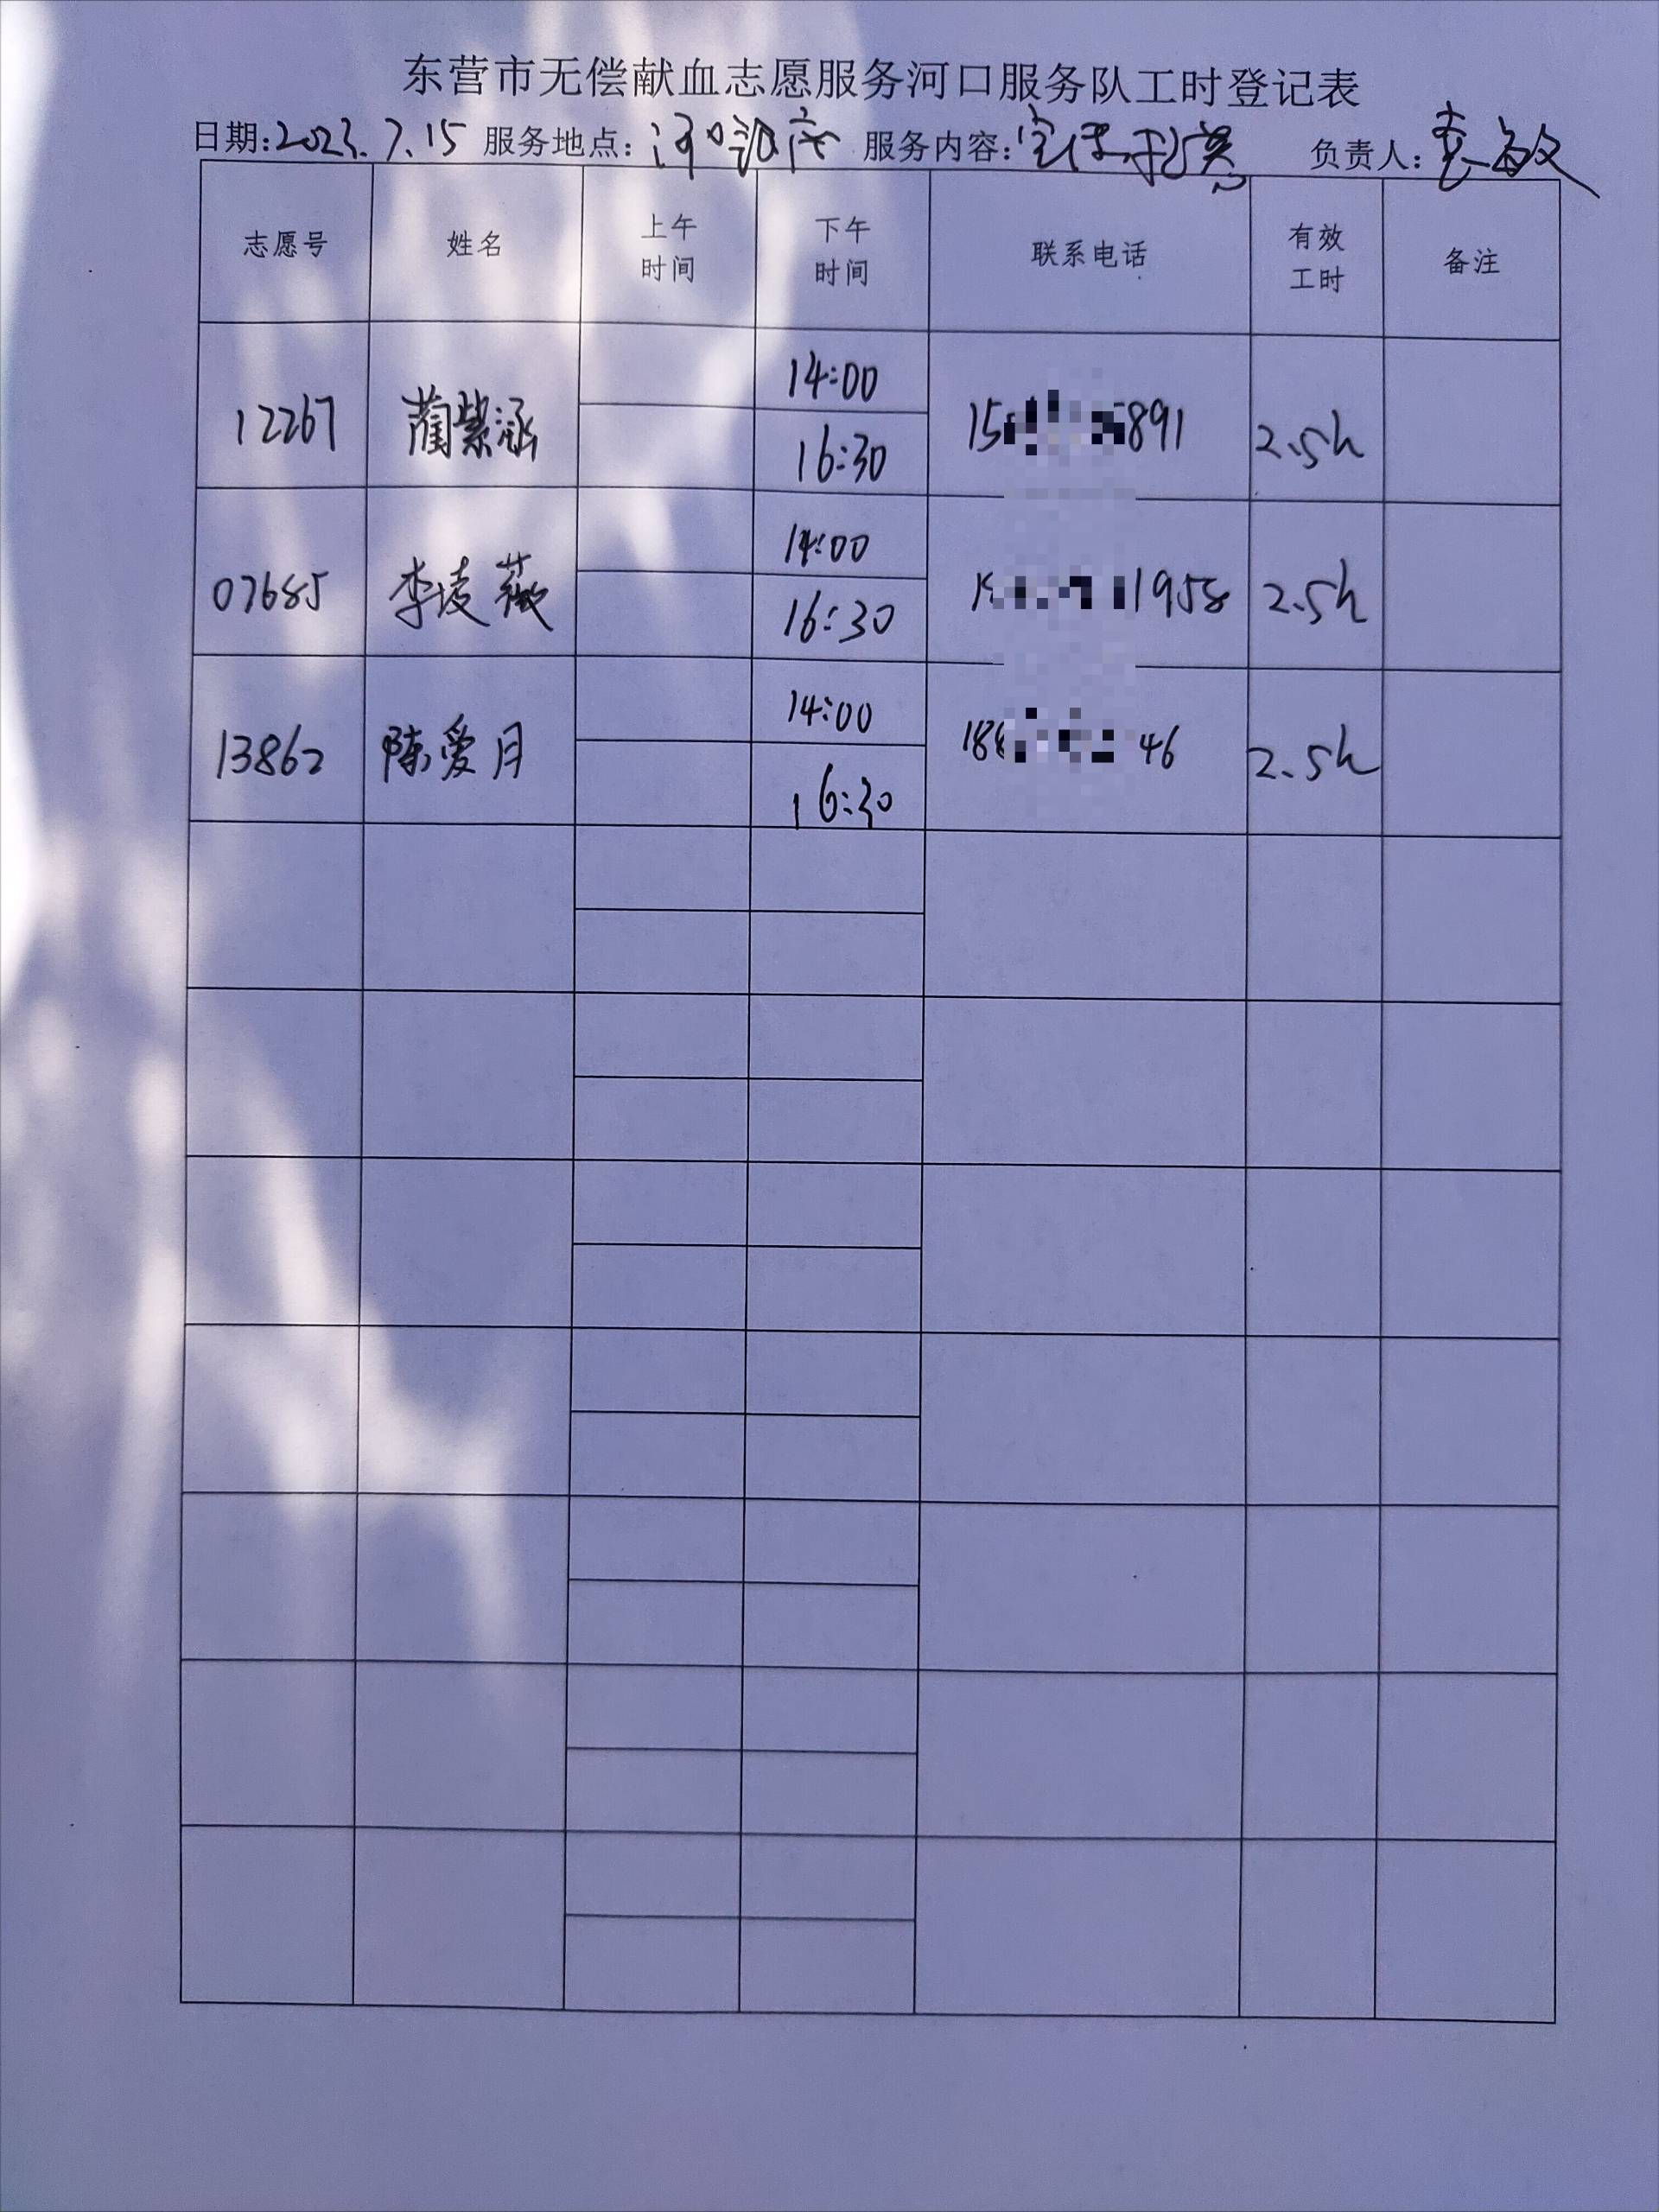 东营市无偿献血志愿服务河口服务队工时登记表
日期:2023.7.15 服务地点: 河口献血 服务内容:宣传招募 负责人: 袁敏
志愿号 姓名 上午时间 下午时间 联系电话 有效工时 备注
12267 蔺紫涵 14:00 16:30 15 891 2.5h
07685 李凌薇 14:00 16:30 1958 2.5h
13862 陈爱月 14:00 16:30 18 46 2.5h